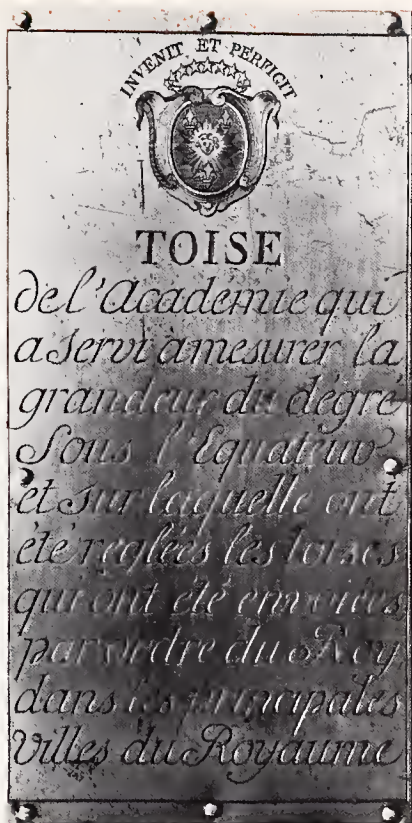 INVENIT ET PERFICIT
TOISE
de l'Academie qui
a servi a mesurer la
grandeur du dégré
Sous l'Equateur
et sur laquelle ont
été reglées les toises
qui ont été envoiées
par ordre du Roy
dans les principales
Villes du Royaume